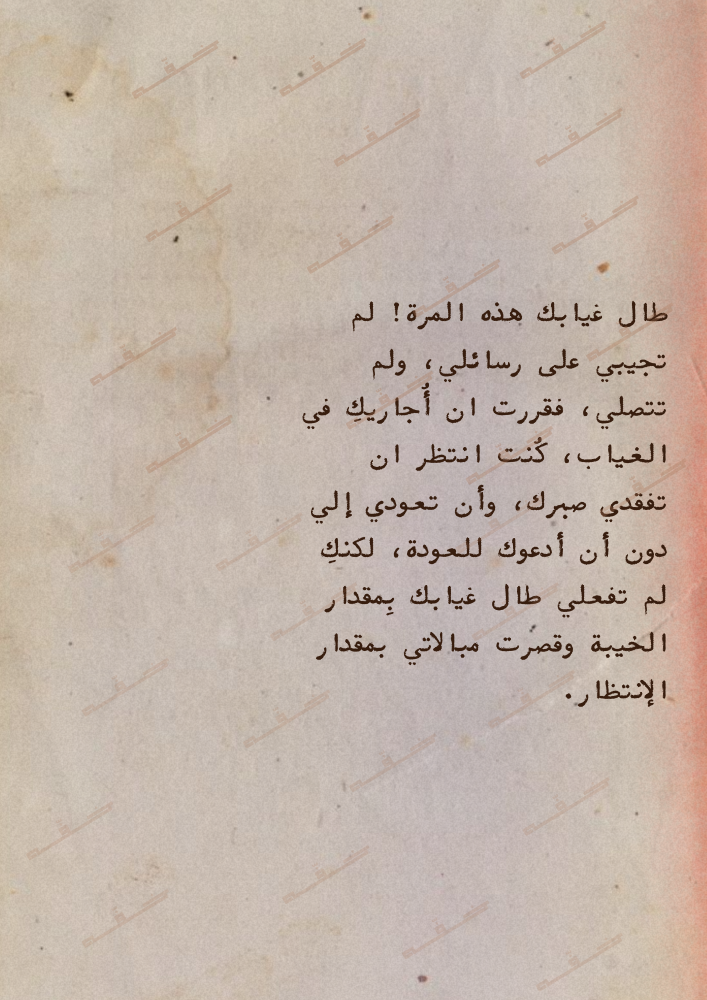 طال غيابك هذه المرة! لم
تجيبي على رسائلي، ولم
تتصلي، فقررت ان أُجاريكِ في
الغياب، كُنت انتظر ان
تفقدي صبرك، وأن تعودي إلي
دون أن أدعوك للعودة، لكنكِ
لم تفعلي طال غيابك بِمقدار
الخيبة وقصرت مبالاتي بمقدار
الإنتظار.